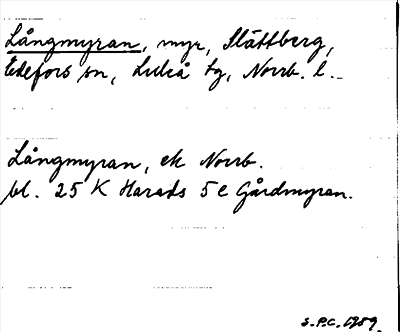 Långmyran, myr, Slättberg,
Edefors sn, Luleå tg, Norrb. l.
Långmyran, ek Norrb.
bl. 25 K Harads 5 e Gårdmyran.
S.P.C. 1959.